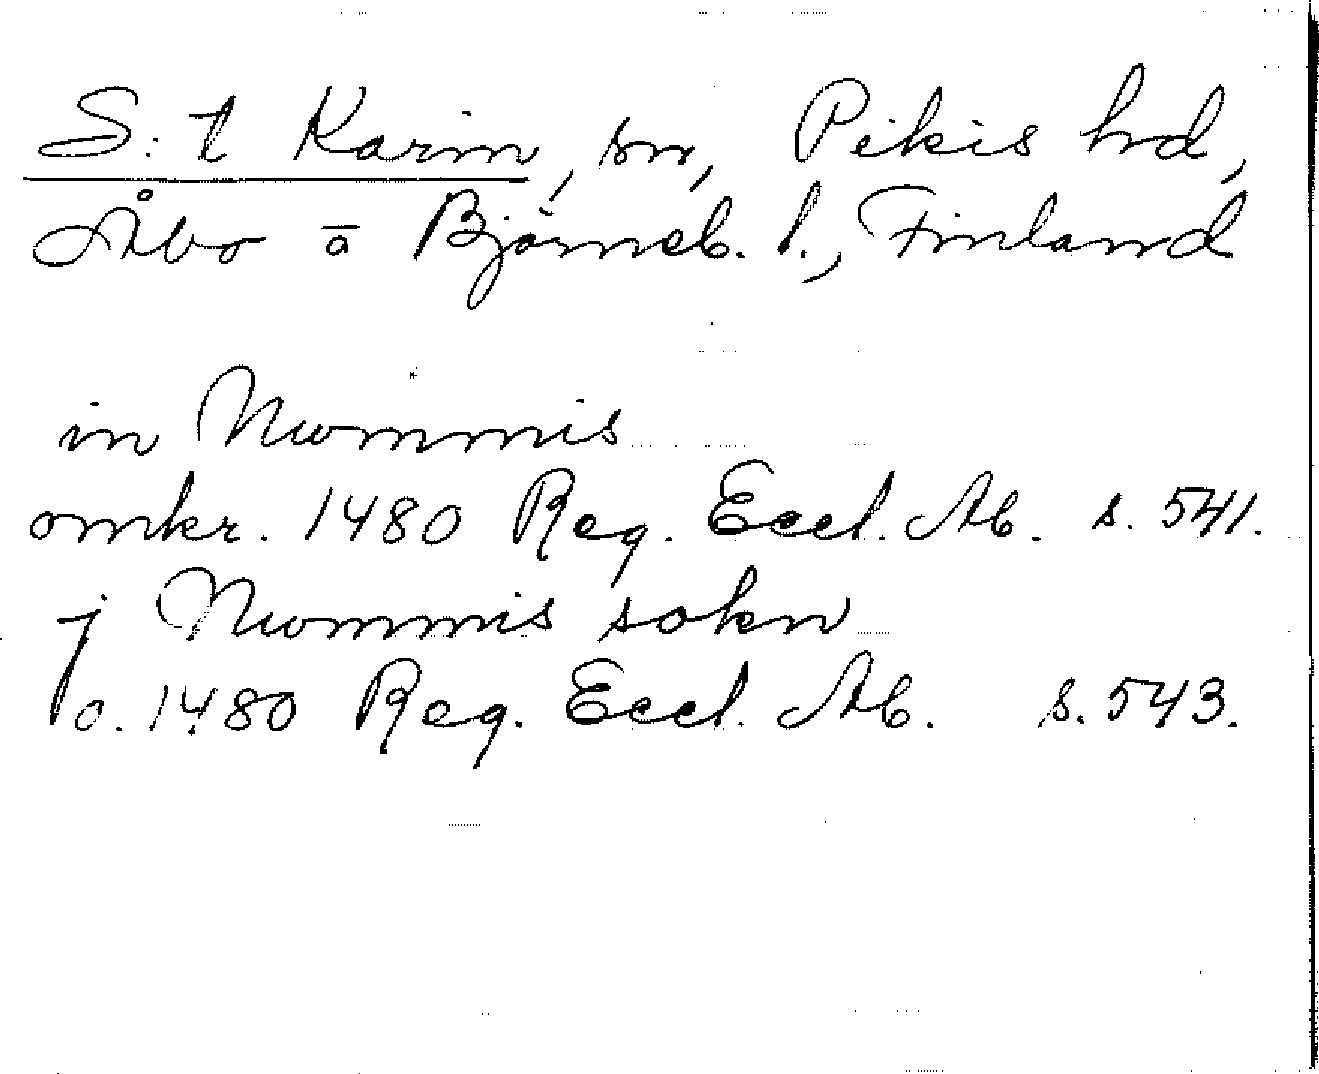 S:t Karin, sn, Pikis hd,
Åbo o Björneb. l., Finland
in Nummis
omkr. 1480 Reg. Eccl. Ab. s. 541.
j Nummis sokn
o. 1480 Reg. Eccl. Ab. s. 543.